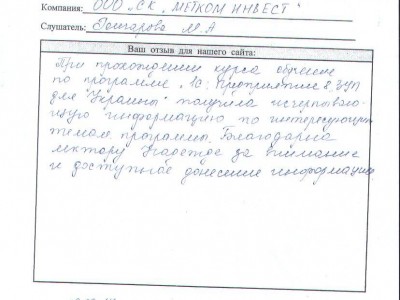 Компания: ООО "СК "МЕТКОМ ИНВЕСТ"
Слушатель: Гонгарова М.А
Ваш отзыв для нашего сайта:
При прохождении курса обучение
по программе "1С: Предприятие 8, ЗУП
для "Украины" получила исчерпываю-
щую информацию по интересующим
темам программы. Благодарна
лектору Надежде за внимание
и доступное донесение информации